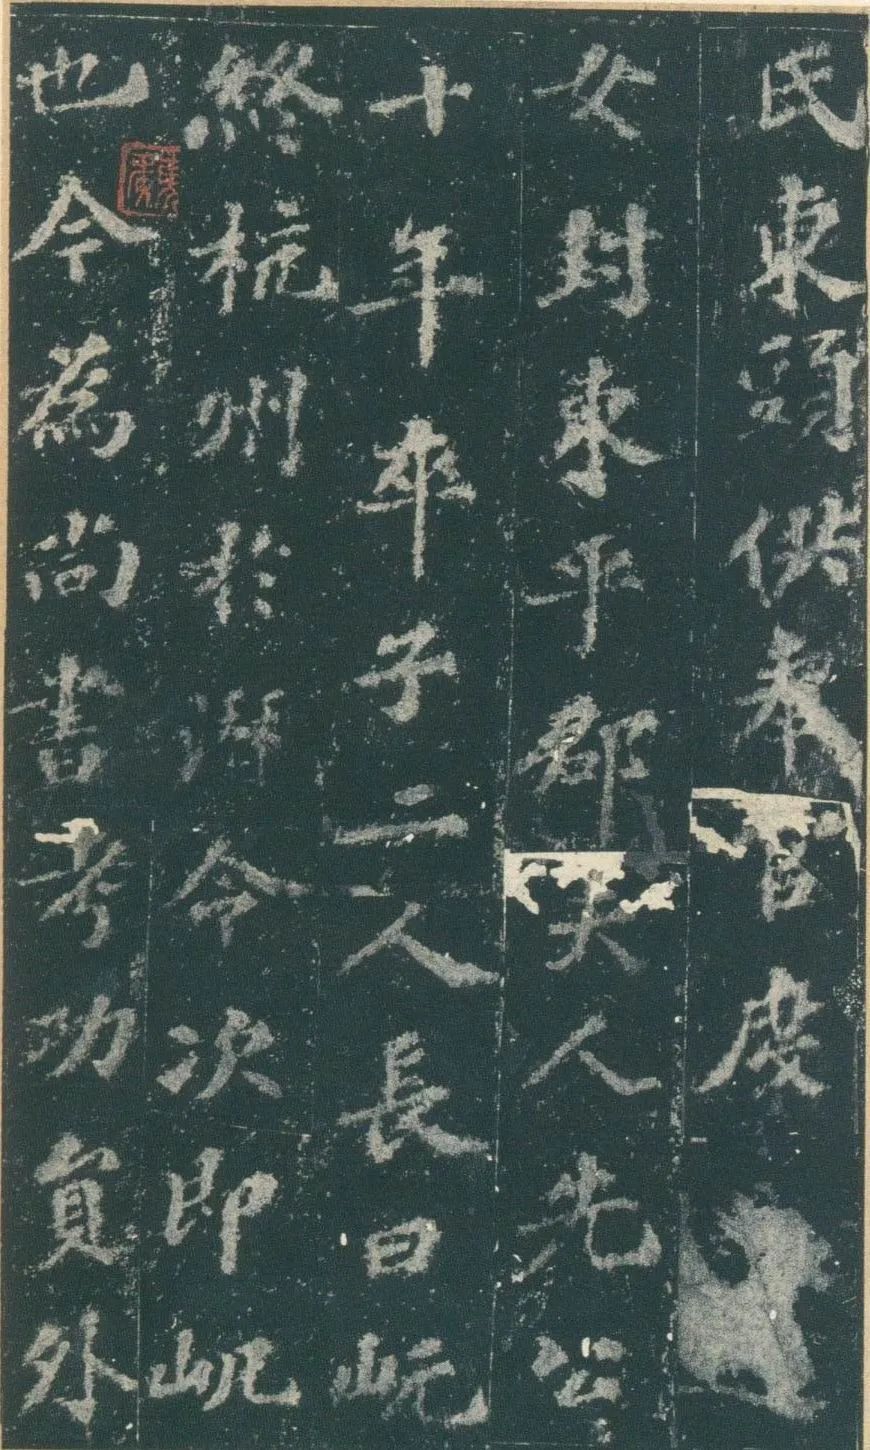 氏東頭供奉官度
女封東平郡夫人先公
十年卒子二人長曰岏
終杭州於潛令次即
也今為尚書考功員外